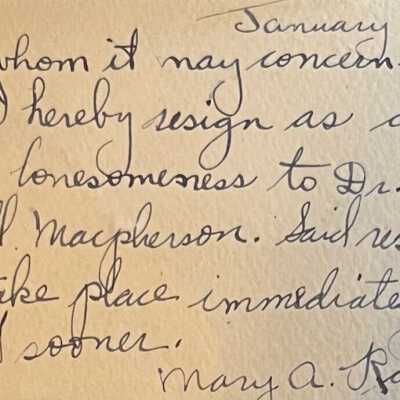 January
whom it may concern
I hereby resign as
lonesomeness to Dr.
Macpherson. Said res
ake place immediate
sooner.
Mary A. Ra